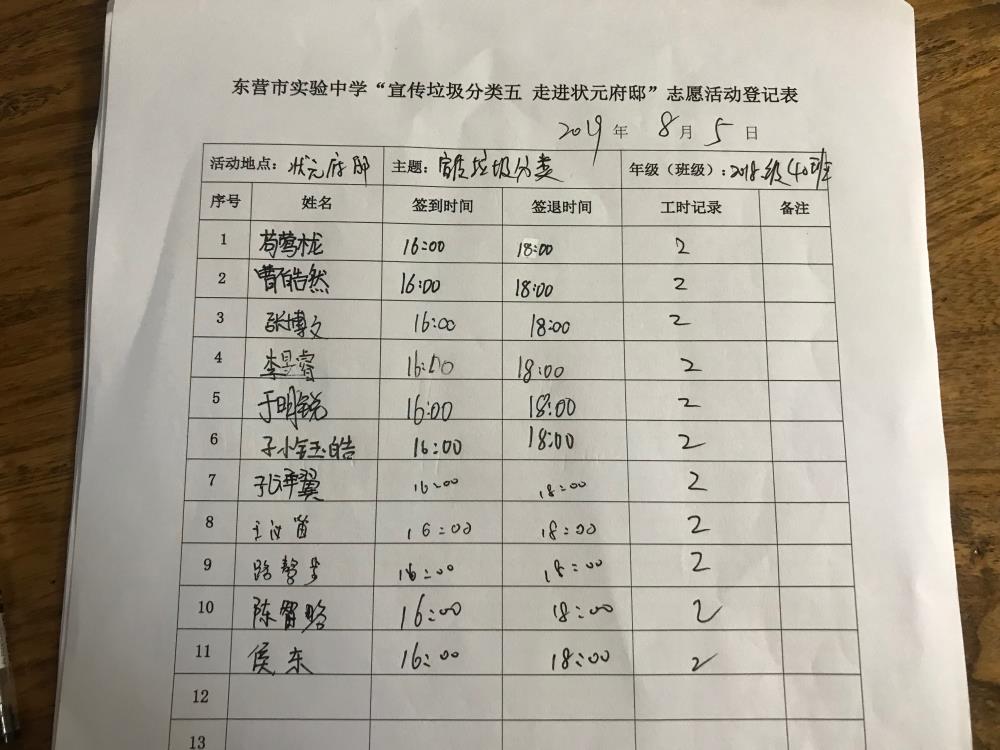 东营市实验中学“宣传垃圾分类五 走进状元府邸”志愿活动登记表
2019 年 8 月 5 日
活动地点：状元府邸 主题：宣传垃圾分类 年级（班级）：2018级40班
序号 姓名 签到时间 签退时间 工时记录 备注
1 苟莺栊 16:00 18:00 2
2 曹皓然 16:00 18:00 2
3 张博文 16:00 18:00 2
4 李昱睿 16:00 18:00 2
5 于明锐 16:00 18:00 2
6 16:00 18:00 2
7 16:00 18:00 2
8 16:00 18:00 2
9 16:00 18:00 2
10 16:00 18:00 2
11 侯东 16:00 18:00 2
12
13